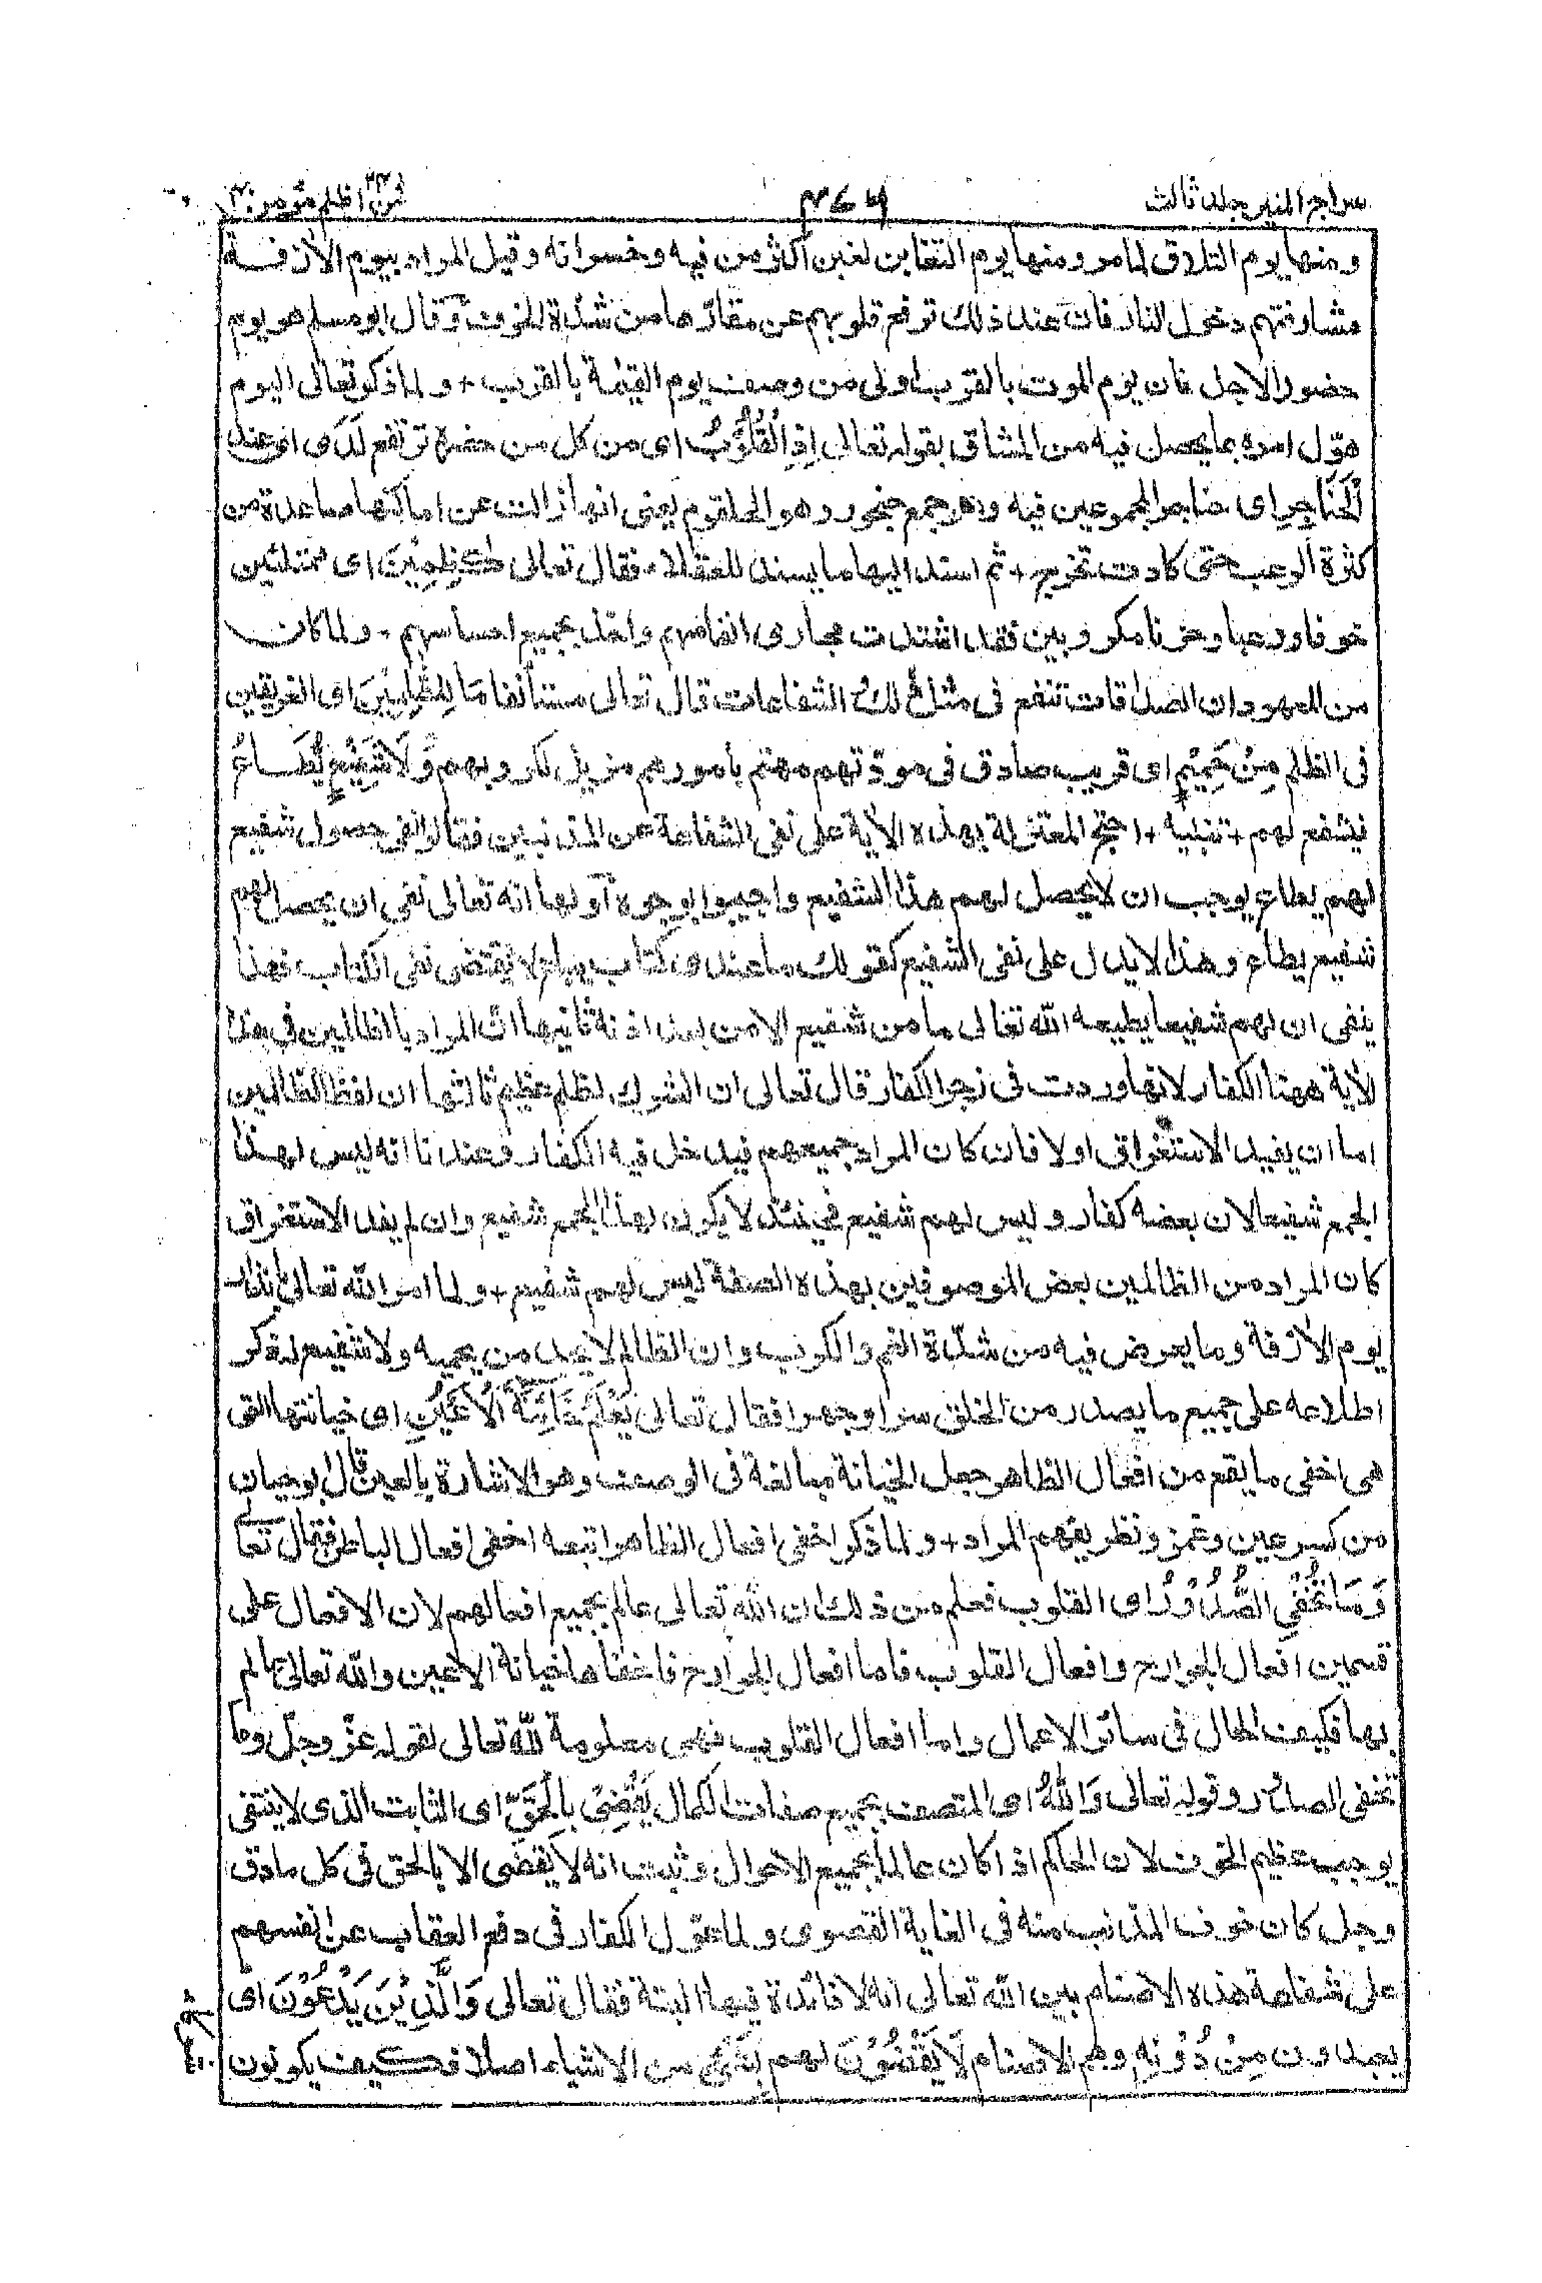 سراجر المنير جلد ثالث ٤٧٩ فمن اظلم مؤمن
ومنها يوم التلاق لما مر ومنها يوم التغابن لغبن اكثر من فيه وخسرانه وقيل المراد بيوم الاٰزفة
مشارفتهم دخول النار فان عند ذلك ترفع قلوبهم عن مقارّها من شدّة الخوف وقال ابو مسلم هو يوم
حضور الاجل فان يوم الموت بالقرب اولى من وصف يوم القيٰمة بالقرب + ولما ذكر تعالى اليوم
هوّل امره بما يحصل فيه من المشاق بقوله تعالى اِذِ الْقُلُوْبُ اى من كل من حضره ترتفع لَدَى اى عند
الْحَنَاجِرِ اى حناجر المجموعين فيه وهى جمع حنجور وهو الحلقوم يعنى انها زالت عن اماكنها صاعدة من
كثرة الرعب حتى كادت تخرج + ثم اسند اليها ما يسند للعقلاء فقال تعالى كٰظِمِيْنَ اى ممتلئين
خوفا ورعبا وحزنا مكروبين فقد اشتدت مجارى انفاسهم واخذ بجميع احساسهم - ولما كان
من المعهود ان الصداقات تنفع فى مثل ذلك الشفاعات قال تعالى مستأنفا مَا لِلظّٰلِمِيْنَ اى الغريقين
فى الظلم مِنْ حَمِيْمٍ اى قريب صادق فى مودّتهم مهتم بامورهم مزيل لكروبهم وَّلَا شَفِيْعٍ يُّطَاعُ
فيشفع لهم + تنبيه + احتج المعتزلة بهذه الاٰية على نفى الشفاعة عن المذنبين فقالوا نفى حصول شفيع
لهم يطاع يوجب ان لا يحصل لهم هذا الشفيع واجيبوا بوجوه اولها انه تعالى نفى ان يحصل لهم
شفيع يطاع وهذا لا يدل على نفى الشفيع كقولك ما عندى كتاب يباع لا يقتضى نفى الكتاب فهذا
ينفى ان لهم شفيعا يطيعه الله تعالى ما من شفيع الا من بعد اذنه ثانيها ان المراد بالظالمين فى هذه
الاٰية ههنا الكفار لانها وردت فى زجر الكفار قال تعالى ان الشرك لظلم عظيم ثالثها ان لفظ الظالمين
اما ان يفيد الاستغراق او لا فان كان المراد جميعهم فيدخل فيه الكفار وعندنا انه ليس لهذا
الجمع شفيع الان بعضه كفار وليس لهم شفيع فحينئذ لا يكون لهذا الجمع شفيع وان لم يفد الاستغراق
كان المراد من الظالمين بعض الموصوفين بهذه الصفة ليس لهم شفيع + ولما امر الله تعالى بانذار
يوم الاٰزفة وما يعرض فيه من شدّة الغم والكرب وان الظالم لا يجد من يحميه ولا شفيع له ذكر
اطلاعه على جميع ما يصدر من الخلق سرا وجهرا فقال تعالى يَعْلَمُ خَائِنَةَ الْاَعْيُنِ اى خيانتها التى
هى اخفى ما يقع من افعال الظاهر جعل الخيانة مبالغة فى الوصف وهو الاشارة بالعين قال ابو حيان
من كسر عين وغمز ونظر يفهم المراد + ولما ذكر اخفى افعال الظاهر اتبعه اخفى افعال الباطن فقال تعالى
وَمَا تُخْفِي الصُّدُوْرُ اى القلوب فعلم من ذلك ان الله تعالى عالم بجميع افعالهم لان الافعال على
قسمين افعال الجوارح وافعال القلوب فاما افعال الجوارح فاخفاها خيانة الاعين والله تعالى عالم
بها فكيف الحال فى سائر الاعمال واما افعال القلوب فهى معلومة لله تعالى لقوله عزّ وجلّ وما
تخفى الصدور وقوله تعالى وَاللّٰهُ اى المتصف بجميع صفات الكمال يَقْضِيْ بِالْحَقِّ اى الثابت الذى لا ينتفى
يوجب عظيم الخوف لان الحاكم اذا كان عالما بجميع الاحوال وثبت انه لا يقضى الا بالحق فى كل ما دق
وجل كان خوف المذنب منه فى الغاية القصوى ولما عوّل الكفار فى دفع العقاب عن انفسهم
على شفاعة هذه الاصنام بين الله تعالى انه لا فائدة فيها البتة فقال تعالى وَالَّذِيْنَ يَدْعُوْنَ اى
يعبدون مِنْ دُوْنِهٖ وهم الاصنام لَا يَقْضُوْنَ لهم بِشَيْءٍ من الاشياء اصلا فكيف يكونون